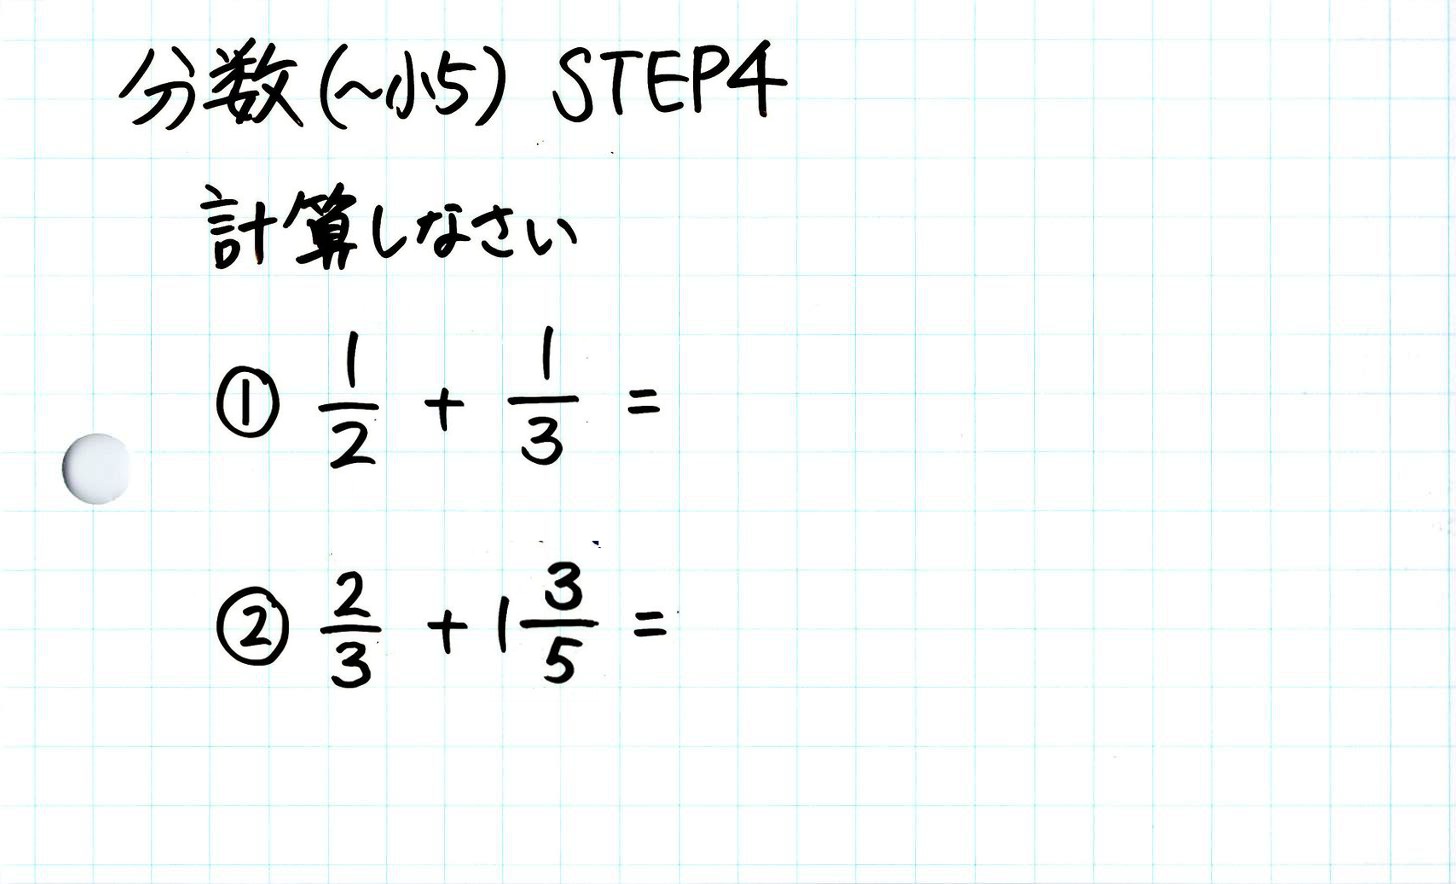 分数(~小5) STEP4
計算しなさい
① 1/2 + 1/3 =
② 2/3 + 1 3/5 =